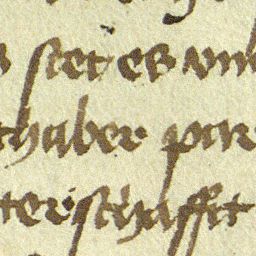 s stet es vn
thaber par
terschafft